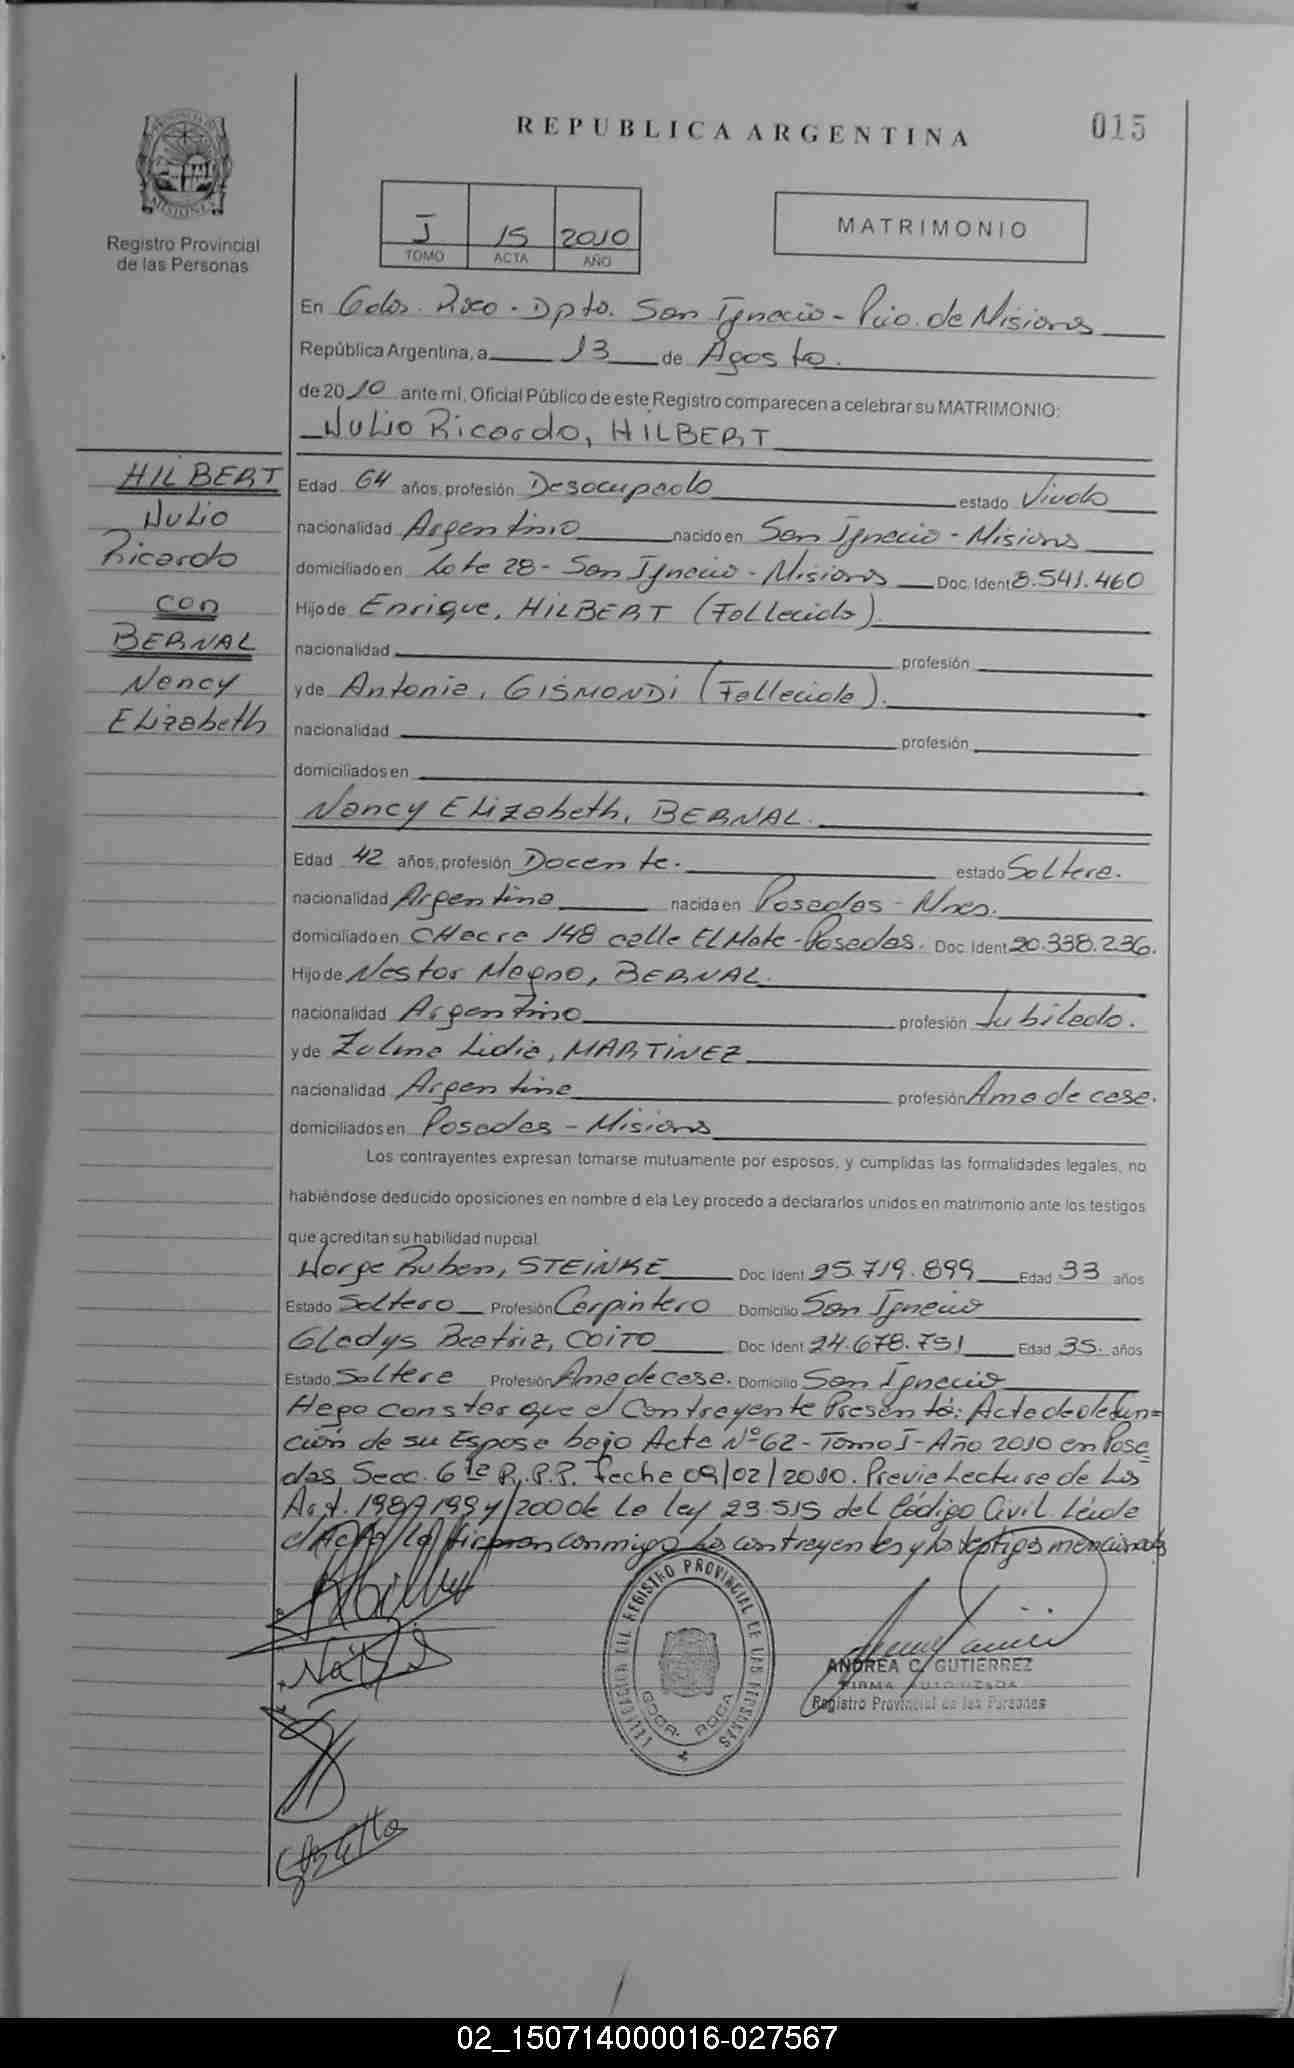 REPUBLICA ARGENTINA
015
PROVINCIA DE
MISIONES
Registro Provincial
de las Personas
I 15 2010
TOMO ACTA AÑO
MATRIMONIO
En Gdor. Roca - Dpto. San Ignacio - Pcio. de Misiones
República Argentina, a 13 de Agosto.
de 2010 ante mí, Oficial Público de este Registro comparecen a celebrar su MATRIMONIO:
Julio Ricardo, HILBERT
HILBERT
Julio
Ricardo
con
BERNAL
Nancy
Elizabeth
Edad 64 años, profesión Desocupado estado Viudo
nacionalidad Argentino nacido en San Ignacio - Misiones
domiciliado en Lote 28 - San Ignacio - Misiones Doc. Ident 8.541.460
Hijo de Enrique, HILBERT (Fallecido).
nacionalidad profesión
y de Antonia, GISMONDI (Fallecida).
nacionalidad profesión
domiciliados en
Nancy Elizabeth, BERNAL.
Edad 42 años, profesión Docente. estado Soltera.
nacionalidad Argentina nacida en Posadas - Mnes.
domiciliado en CHacra 148 calle El Mate - Posadas. Doc. Ident 20.338.236.
Hijo de Nestor Magno, BERNAL.
nacionalidad Argentino profesión Jubilado.
y de Zulma Lidia, MARTINEZ
nacionalidad Argentina profesión Ama de casa.
domiciliados en Posadas - Misiones
Los contrayentes expresan tomarse mutuamente por esposos, y cumplidas las formalidades legales, no
habiéndose deducido oposiciones en nombre d ela Ley procedo a declararlos unidos en matrimonio ante los testigos
que acreditan su habilidad nupcial.
Jorge Ruben, STEINKE Doc. Ident 25.719.899 Edad 33 años
Estado Soltero Profesión Carpintero Domicilio San Ignacio
Gladys Beatriz, COITO Doc. Ident 24.678.751 Edad 35. años
Estado Soltera Profesión Ama de casa. Domicilio San Ignacio
Hago constar que el Contrayente Presentó: Acta de defun=
ción de su Esposa bajo Acta Nº 62 - Tomo I - Año 2010 en Posa
das Secc. 6ta R.P.P. fecha 09/02/2010. Previa Lectura de los
Art. 198/199 y/200 de la ley 23.515 del Código Civil. Leída
el Acta la firman conmigo los contrayentes y los testigos mencionados
DELEGACION DEL REGISTRO PROVINCIAL DE LAS PERSONAS
GDOR. ROCA
ANDREA C. GUTIERREZ
FIRMA AUTORIZADA
Registro Provincial de las Personas
02_150714000016-027567